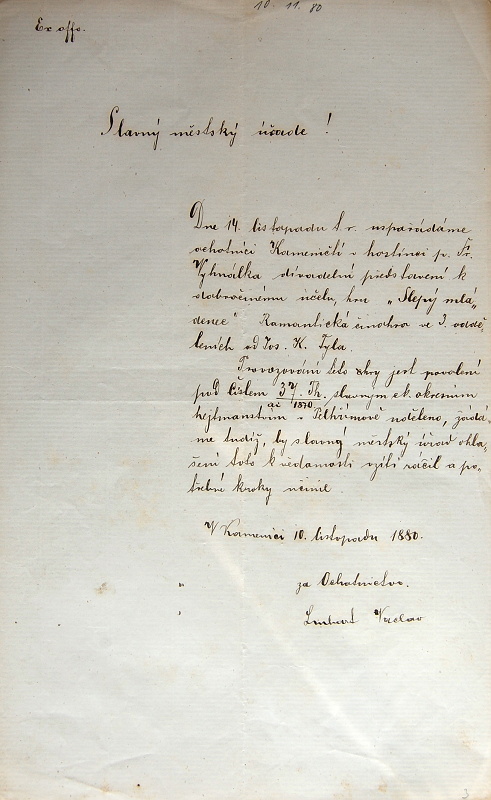 10. 11. 80
Ex offo.
Slavný městský úřade!
Dne 14. listopadu t. r. uspořádáme
ochotníci Kameničtí v hostinci p. Fr.
Vyhnálka divadelní představení k
dobročinnému účelu, hru „Slepý mlá-
denec" Romantická činohra ve 3. oddě-
leních od Jos. K. Tyla.
Provozování této hry jest povolení
pod číslem 37. Th. slavným c. k. okresním
ai 1870
hejtmanstvím v Pelhřimově uděleno, žádá-
me tudíž, by slavný městský úřad ohla-
šení toto k vědomosti vzíti ráčil a po-
třebné kroky učinil.
V Kamenici 10. listopadu 1880.
za Ochotnictvo.
Václav
3